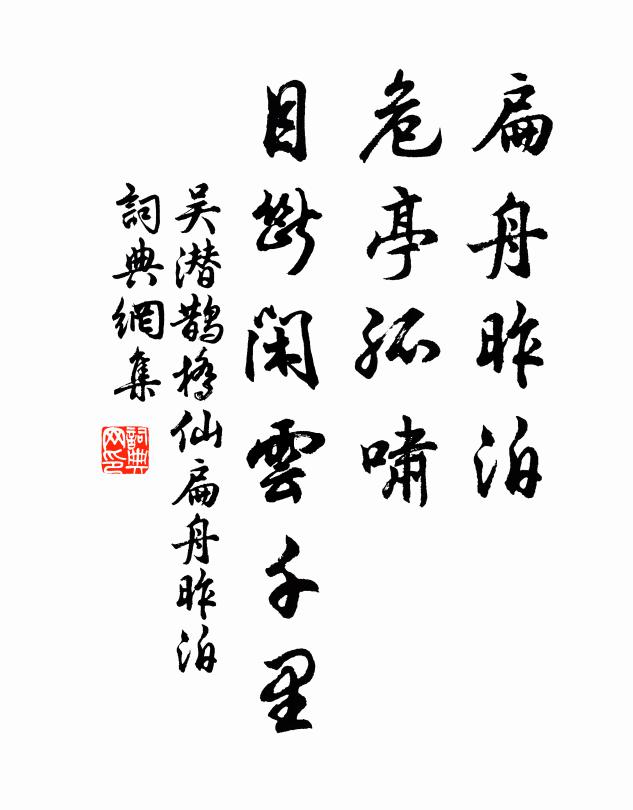 扁舟昨泊
危亭孤嘯
目斷閑雲千里
吳潛鵲橋仙扁舟昨泊
詞典網集
詞典
网印